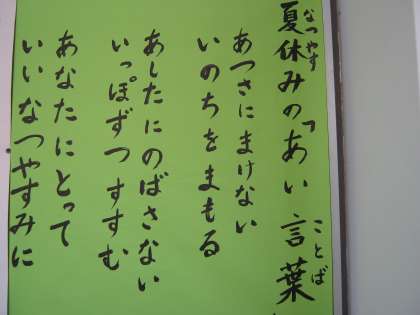 夏休みの「あい言葉
なつやす
ことば
あつさにまけない
いのちをまもる
あしたにのばさない
いっぽずつすすむ
あなたにとって
いいなつやすみに